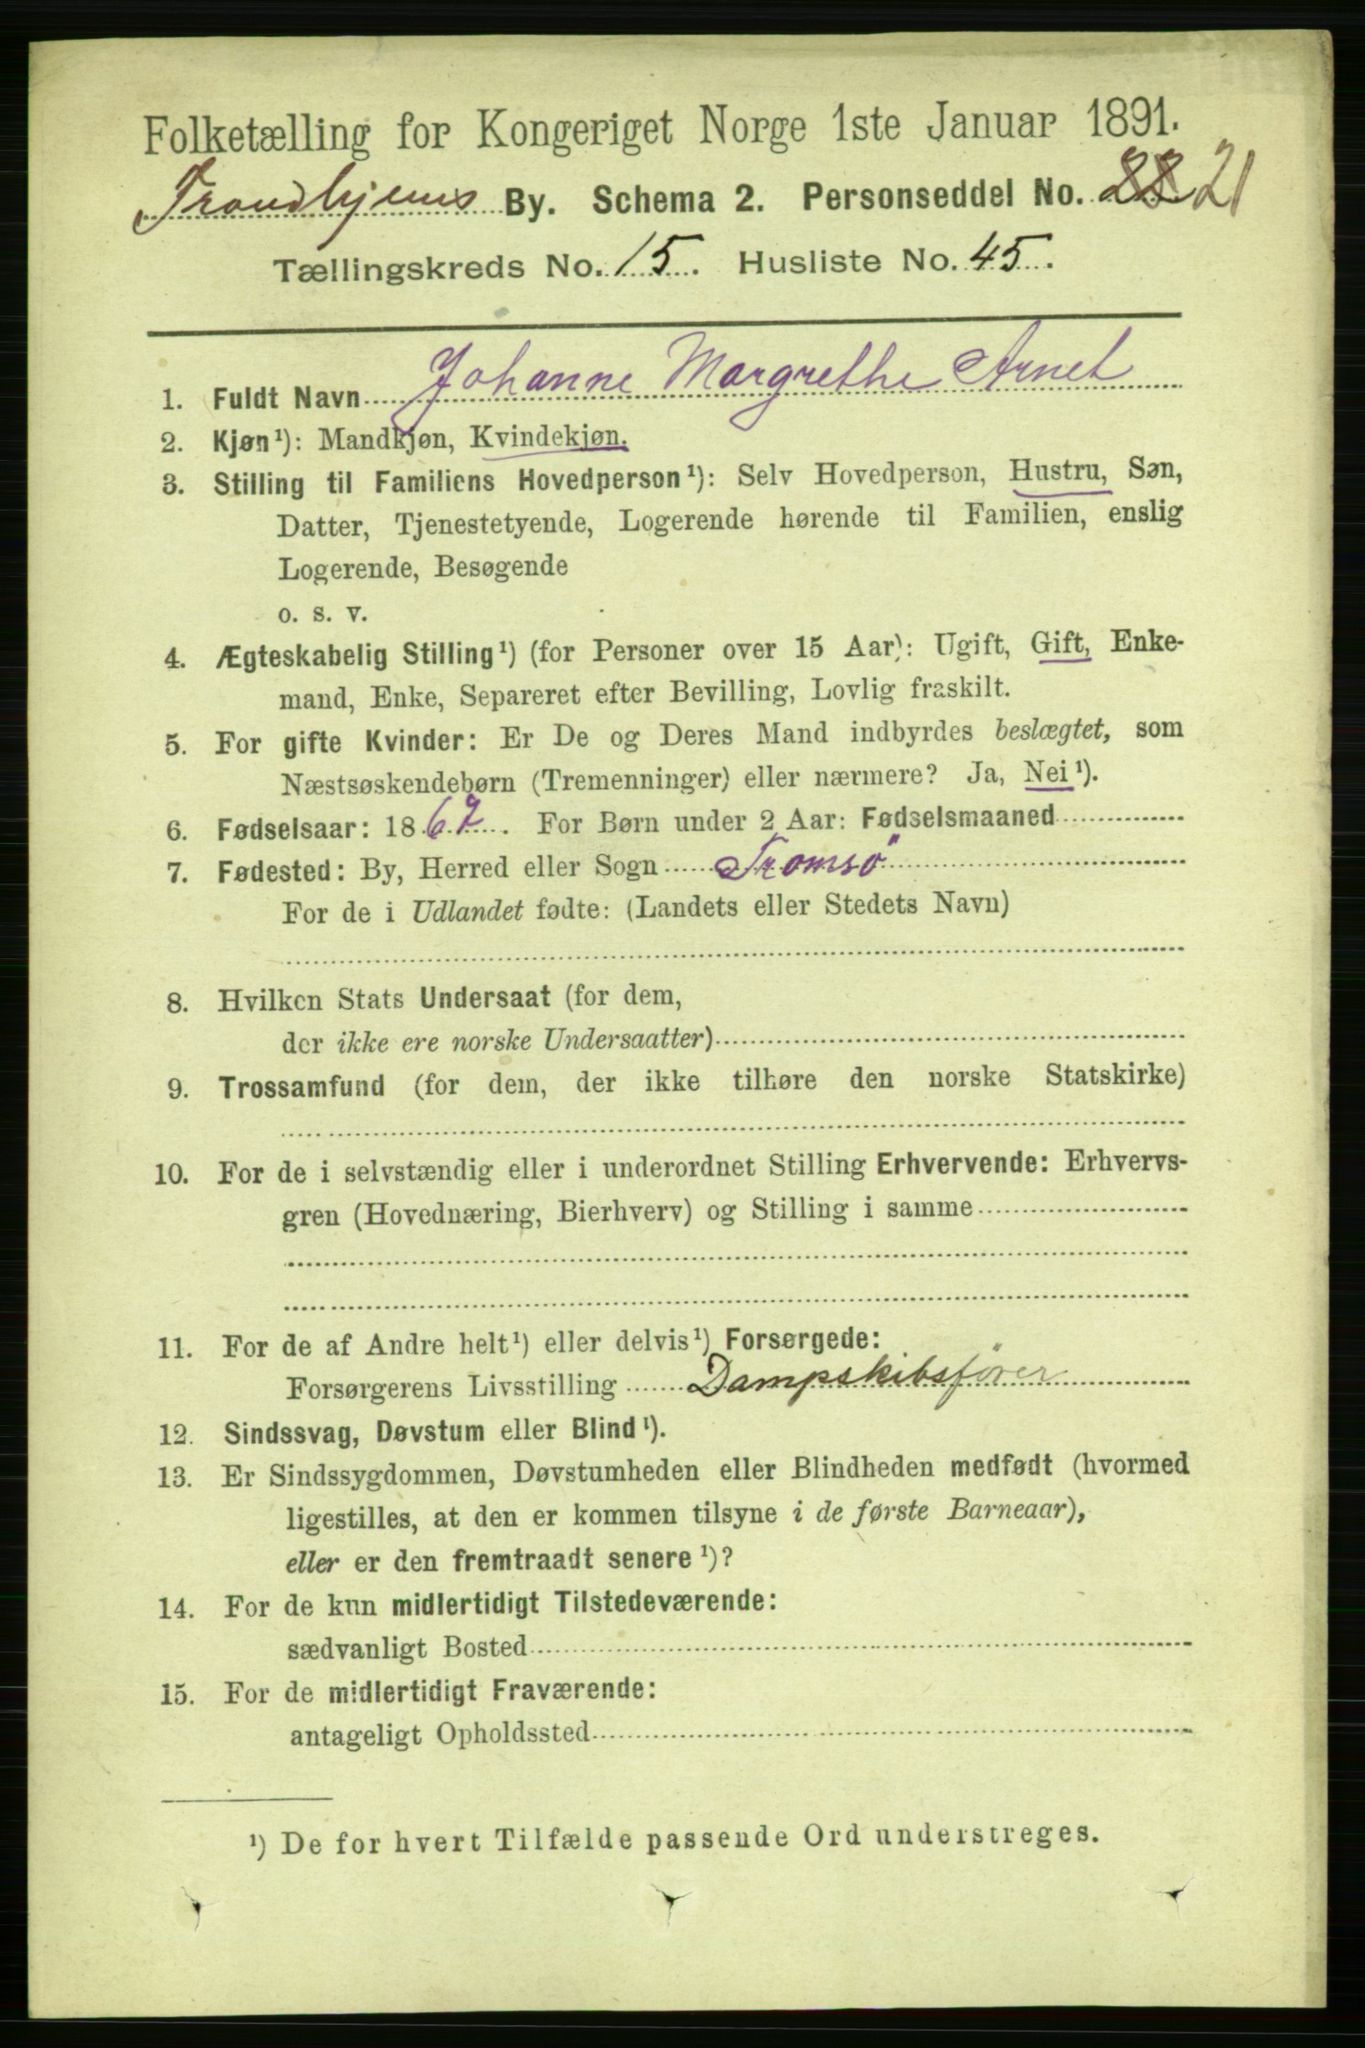 Folketælling for Kongeriget Norge 1ste Januar 1891.
Trondhjems By. Schema 2. Personseddel No. 22 21
Tællingskreds No. 15. Husliste No. 45.
1. Fuldt Navn Johanne Margrethe Arnet
2. Kjøn¹): Mandkjøn, Kvindekjøn.
3. Stilling til Familiens Hovedperson¹): Selv Hovedperson, Hustru, Søn,
Datter, Tjenestetyende, Logerende hørende til Familien, enslig
Logerende, Besøgende
o. s. v.
4. Ægteskabelig Stilling¹) (for Personer over 15 Aar): Ugift, Gift, Enke-
mand, Enke, Separeret efter Bevilling, Lovlig fraskilt.
5. For gifte Kvinder: Er De og Deres Mand indbyrdes beslægtet, som
Næstsøskendebørn (Tremenninger) eller nærmere? Ja, Nei¹).
6. Fødselsaar: 1867. For Børn under 2 Aar: Fødselsmaaned
7. Fødested: By, Herred eller Sogn Tromsö
For de i Udlandet fødte: (Landets eller Stedets Navn)
8. Hvilken Stats Undersaat (for dem,
der ikke ere norske Undersaatter)
9. Trossamfund (for dem, der ikke tilhøre den norske Statskirke)
10. For de i selvstændig eller i underordnet Stilling Erhvervende: Erhvervs-
gren (Hovednæring, Bierhverv) og Stilling i samme
11. For de af Andre helt¹) eller delvis¹) Forsørgede:
Forsørgerens Livsstilling Dampskibsfører
12. Sindssvag, Døvstum eller Blind¹).
13. Er Sindssygdommen, Døvstumheden eller Blindheden medfødt (hvormed
ligestilles, at den er kommen tilsyne i de første Barneaar),
eller er den fremtraadt senere¹)?
14. For de kun midlertidigt Tilstedeværende:
sædvanligt Bosted
15. For de midlertidigt Fraværende:
antageligt Opholdssted
¹) De for hvert Tilfælde passende Ord understreges.